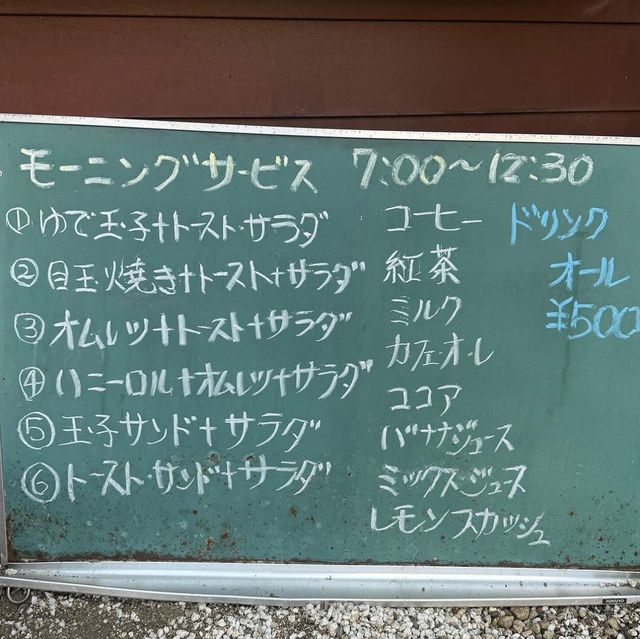 モーニングサービス 7:00〜12:30
①ゆで玉子+トースト・サラダ
②目玉焼き+トースト+サラダ
③オムレツ+トースト+サラダ
④ハニーロール+オムレツ+サラダ
⑤玉子サンド+サラダ
⑥トースト・サンド+サラダ
コーヒー
紅茶
ミルク
カフェオーレ
ココア
バナナジュース
ミックスジュース
レモンスカッシュ
ドリンク
オール
¥500